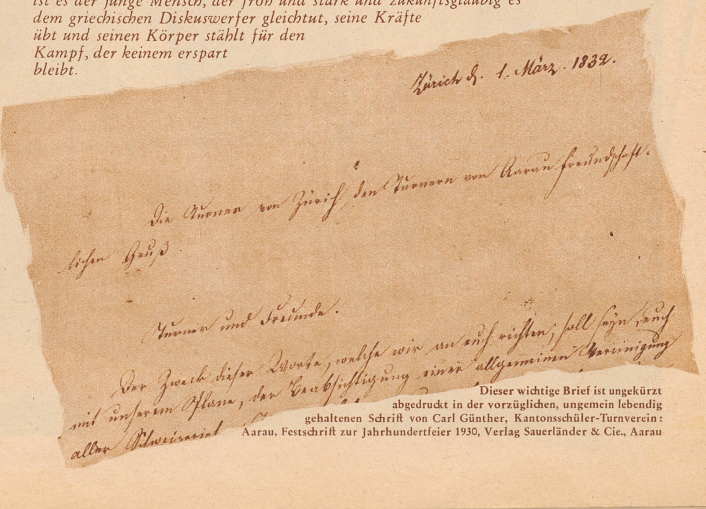 ist es der junge Mensch, der froh und stark und zukunftsgläubig es
dem griechischen Diskuswerfer gleichtut, seine Kräfte
übt und seinen Körper stählt für den
Kampf, der keinem erspart
bleibt.
Zürich d. 1. März. 1832.
Die Turner von Zürich, den Turnern von Aarau freundschaft-
lichen Gruß.
Turner und Freunde.
Der Zweck dieser Worte, welche wir an euch richten, soll seyn, euch
mit unserem Plane, der Beabsichtigung einer allgemeinen Vereinigung
aller
Dieser wichtige Brief ist ungekürzt
abgedruckt in der vorzüglichen, ungemein lebendig
gehaltenen Schrift von Carl Günther, Kantonsschüler-Turnverein:
Aarau, Festschrift zur Jahrhundertfeier 1930, Verlag Sauerländer & Cie., Aarau